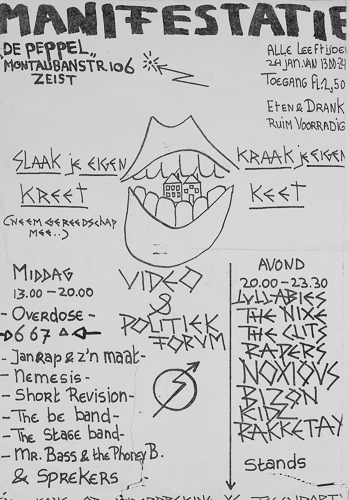 MANIFESTATIE
"DE PEPPEL"
MONTAUBANSTR. 106
ZEIST
ALLE LEEFTIJDEN
24 JAN. VAN 13.00-24
TOEGANG FL. 2,50
ETEN & DRANK
RUIM VOORRADIG
SLAAK je EIGEN
KREET
(NEEM GEREEDSCHAP
MEE..)
KRAAK je EIGEN
KEET
MIDDAG
13.00 - 20.00
- OVERDOSE -
667
- JanRap & z'n maat -
- Nemesis -
- Short Revision -
- The be band -
- The Stage band -
- Mr. Bass & the Phoney B.
& SPREKERS
VIDEO
&
POLITIEK
FORUM
AVOND
20.00 - 23.30
LULLABIES
THE NIXE
THE CLITS
RAPERS
NOXIOUS
BIZON
KIDZ
RAKKETAX
Stands